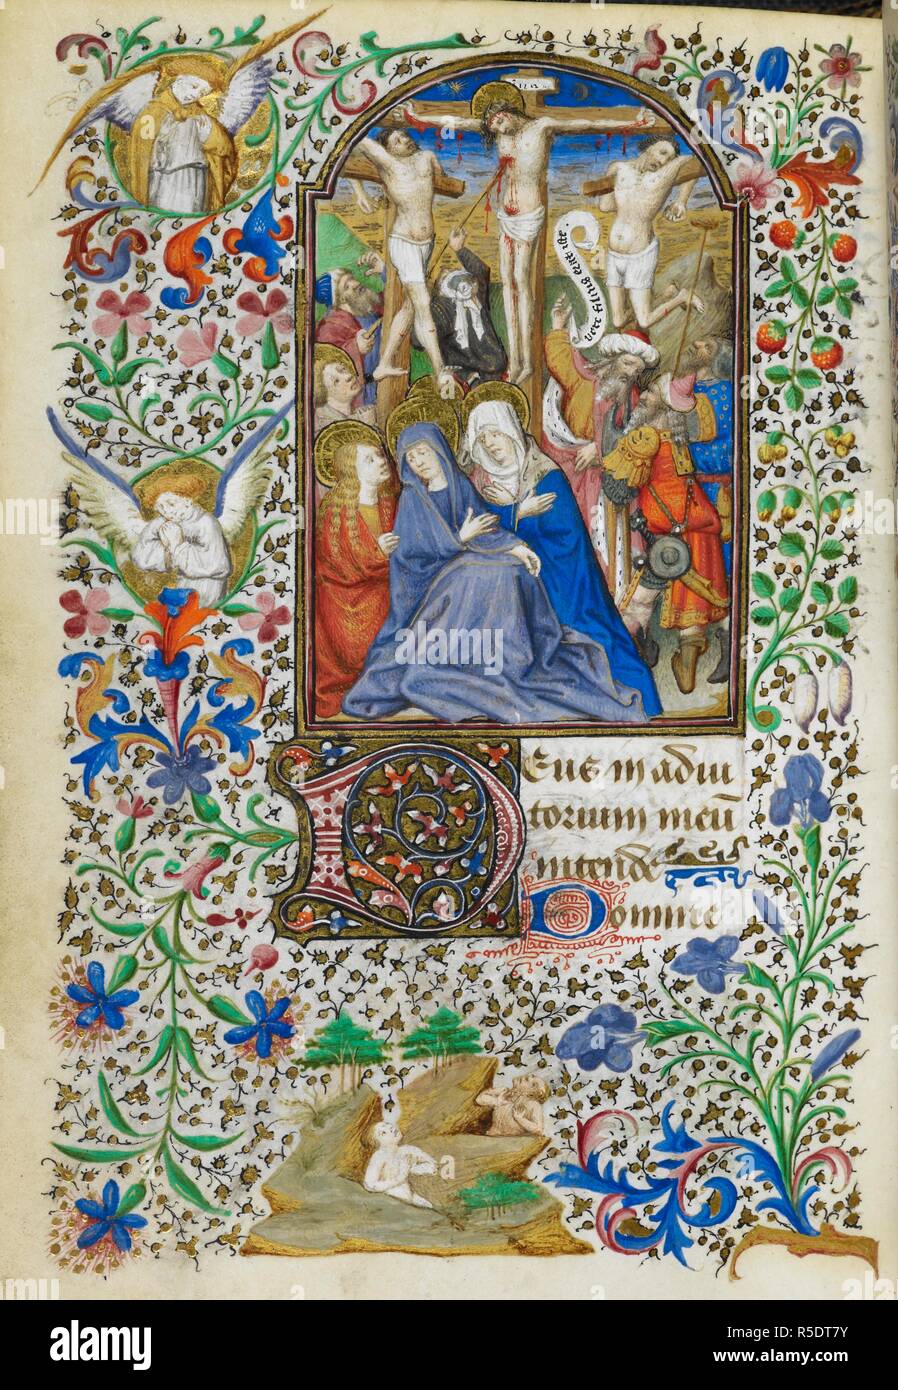 vere filius dei erat iste.
Deus in adiu
torium meū
intende
Domine
alamy
alamy
Image ID: R5DT7Y
www.alamy.com